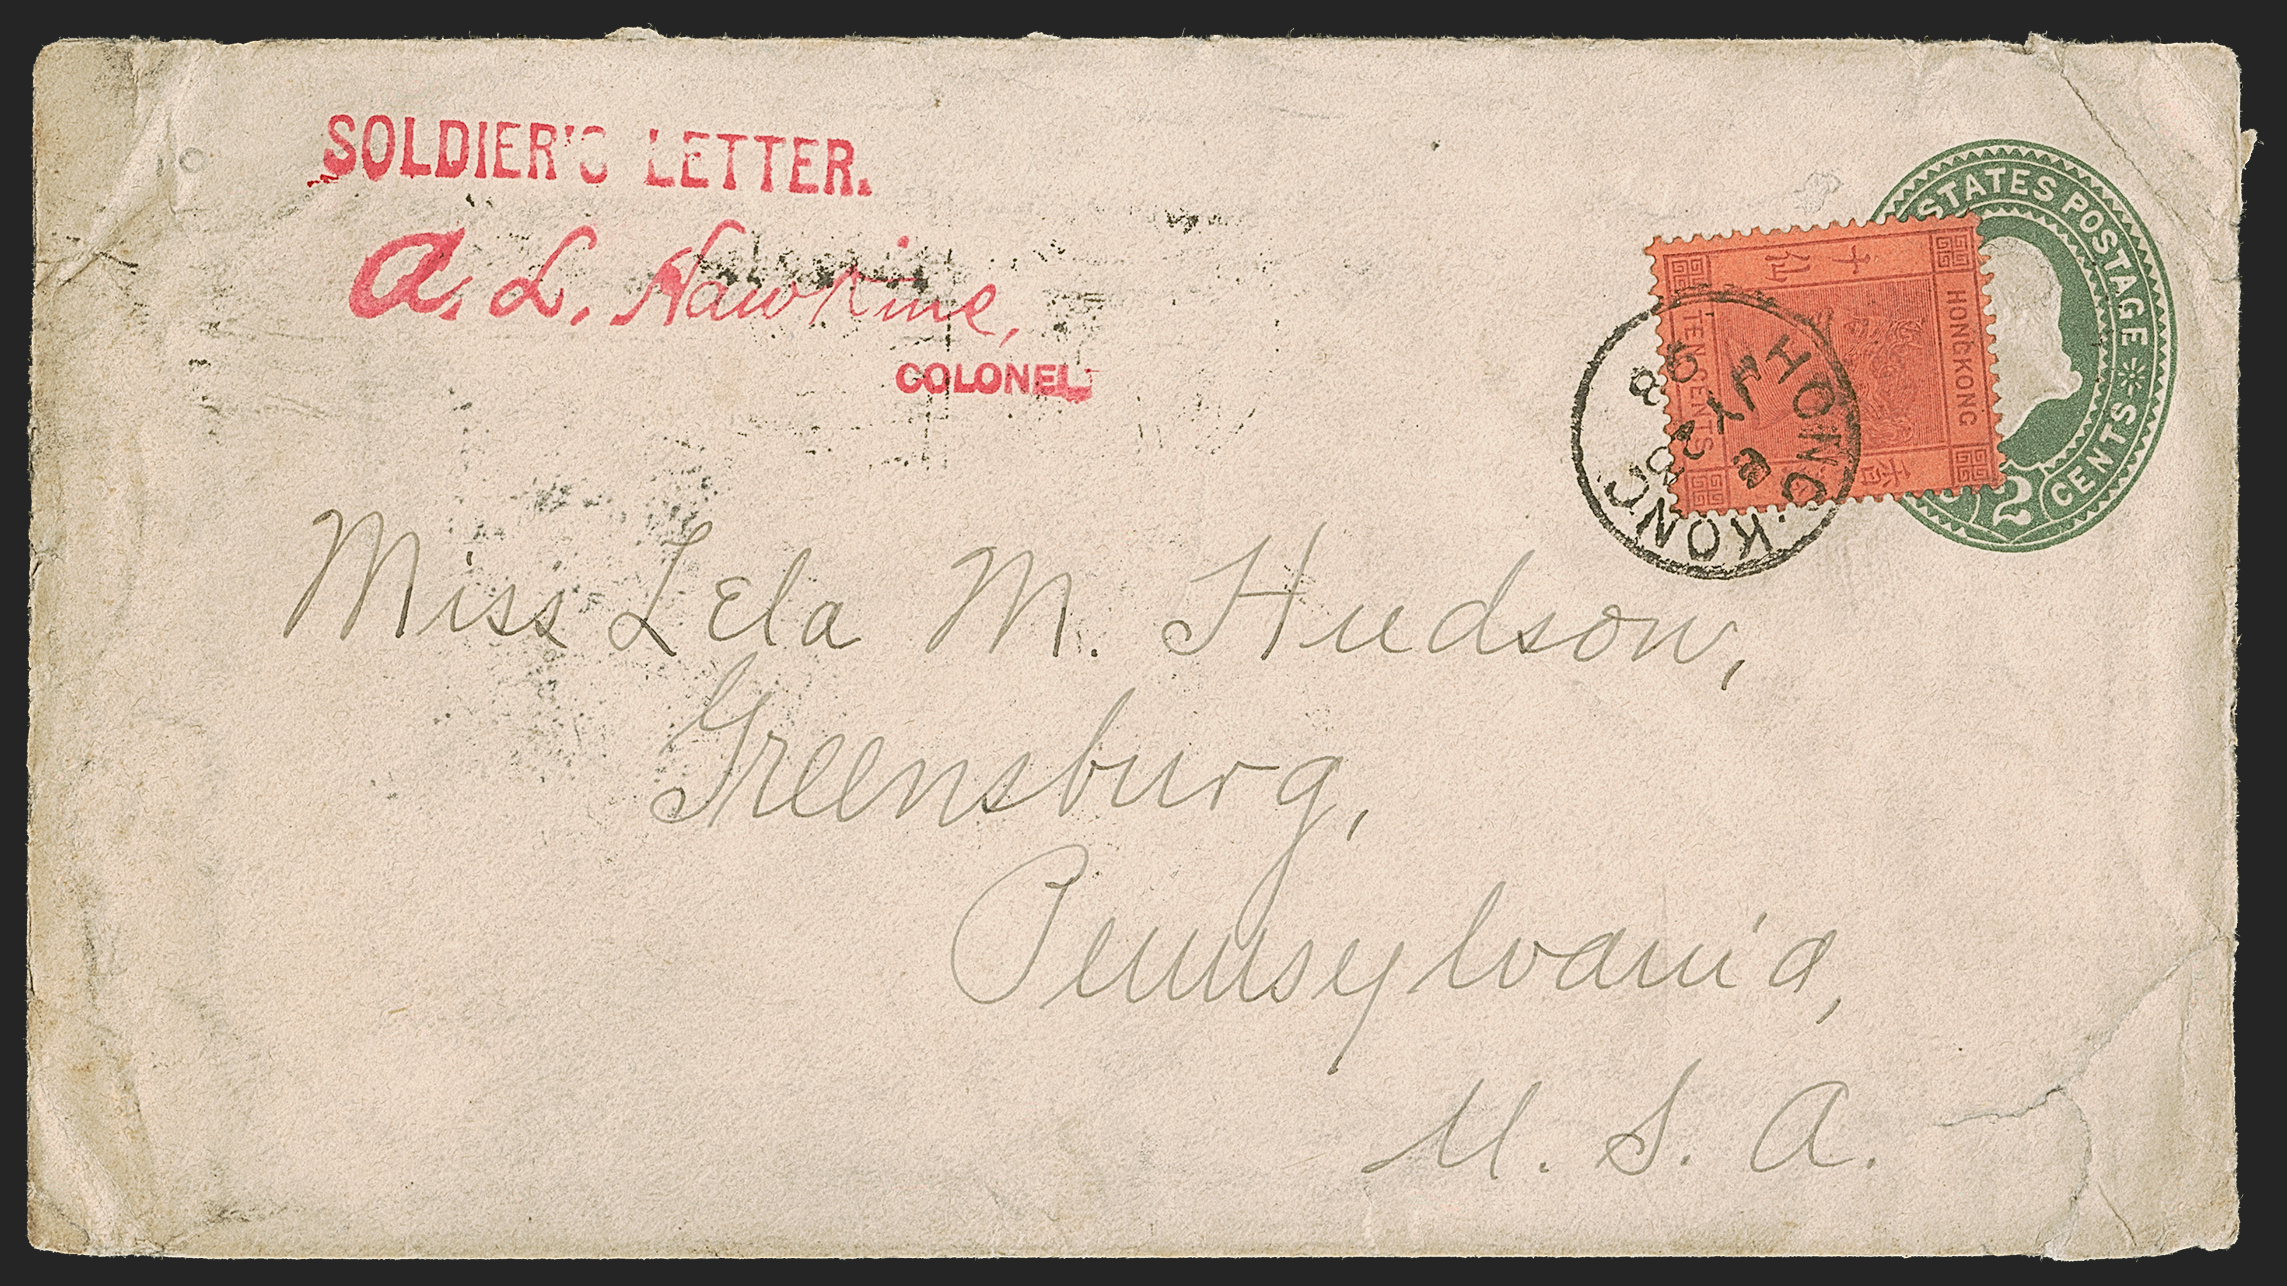 SOLDIER'S LETTER.
A. L. Hawkins,
COLONEL.
STATES POSTAGE
2 CENTS
HONG KONG
TEN CENTS
香
十
仙
HONG KONG
98
Miss Lela M. Hudson,
Greensburg,
Pennsylvania,
U. S. A.